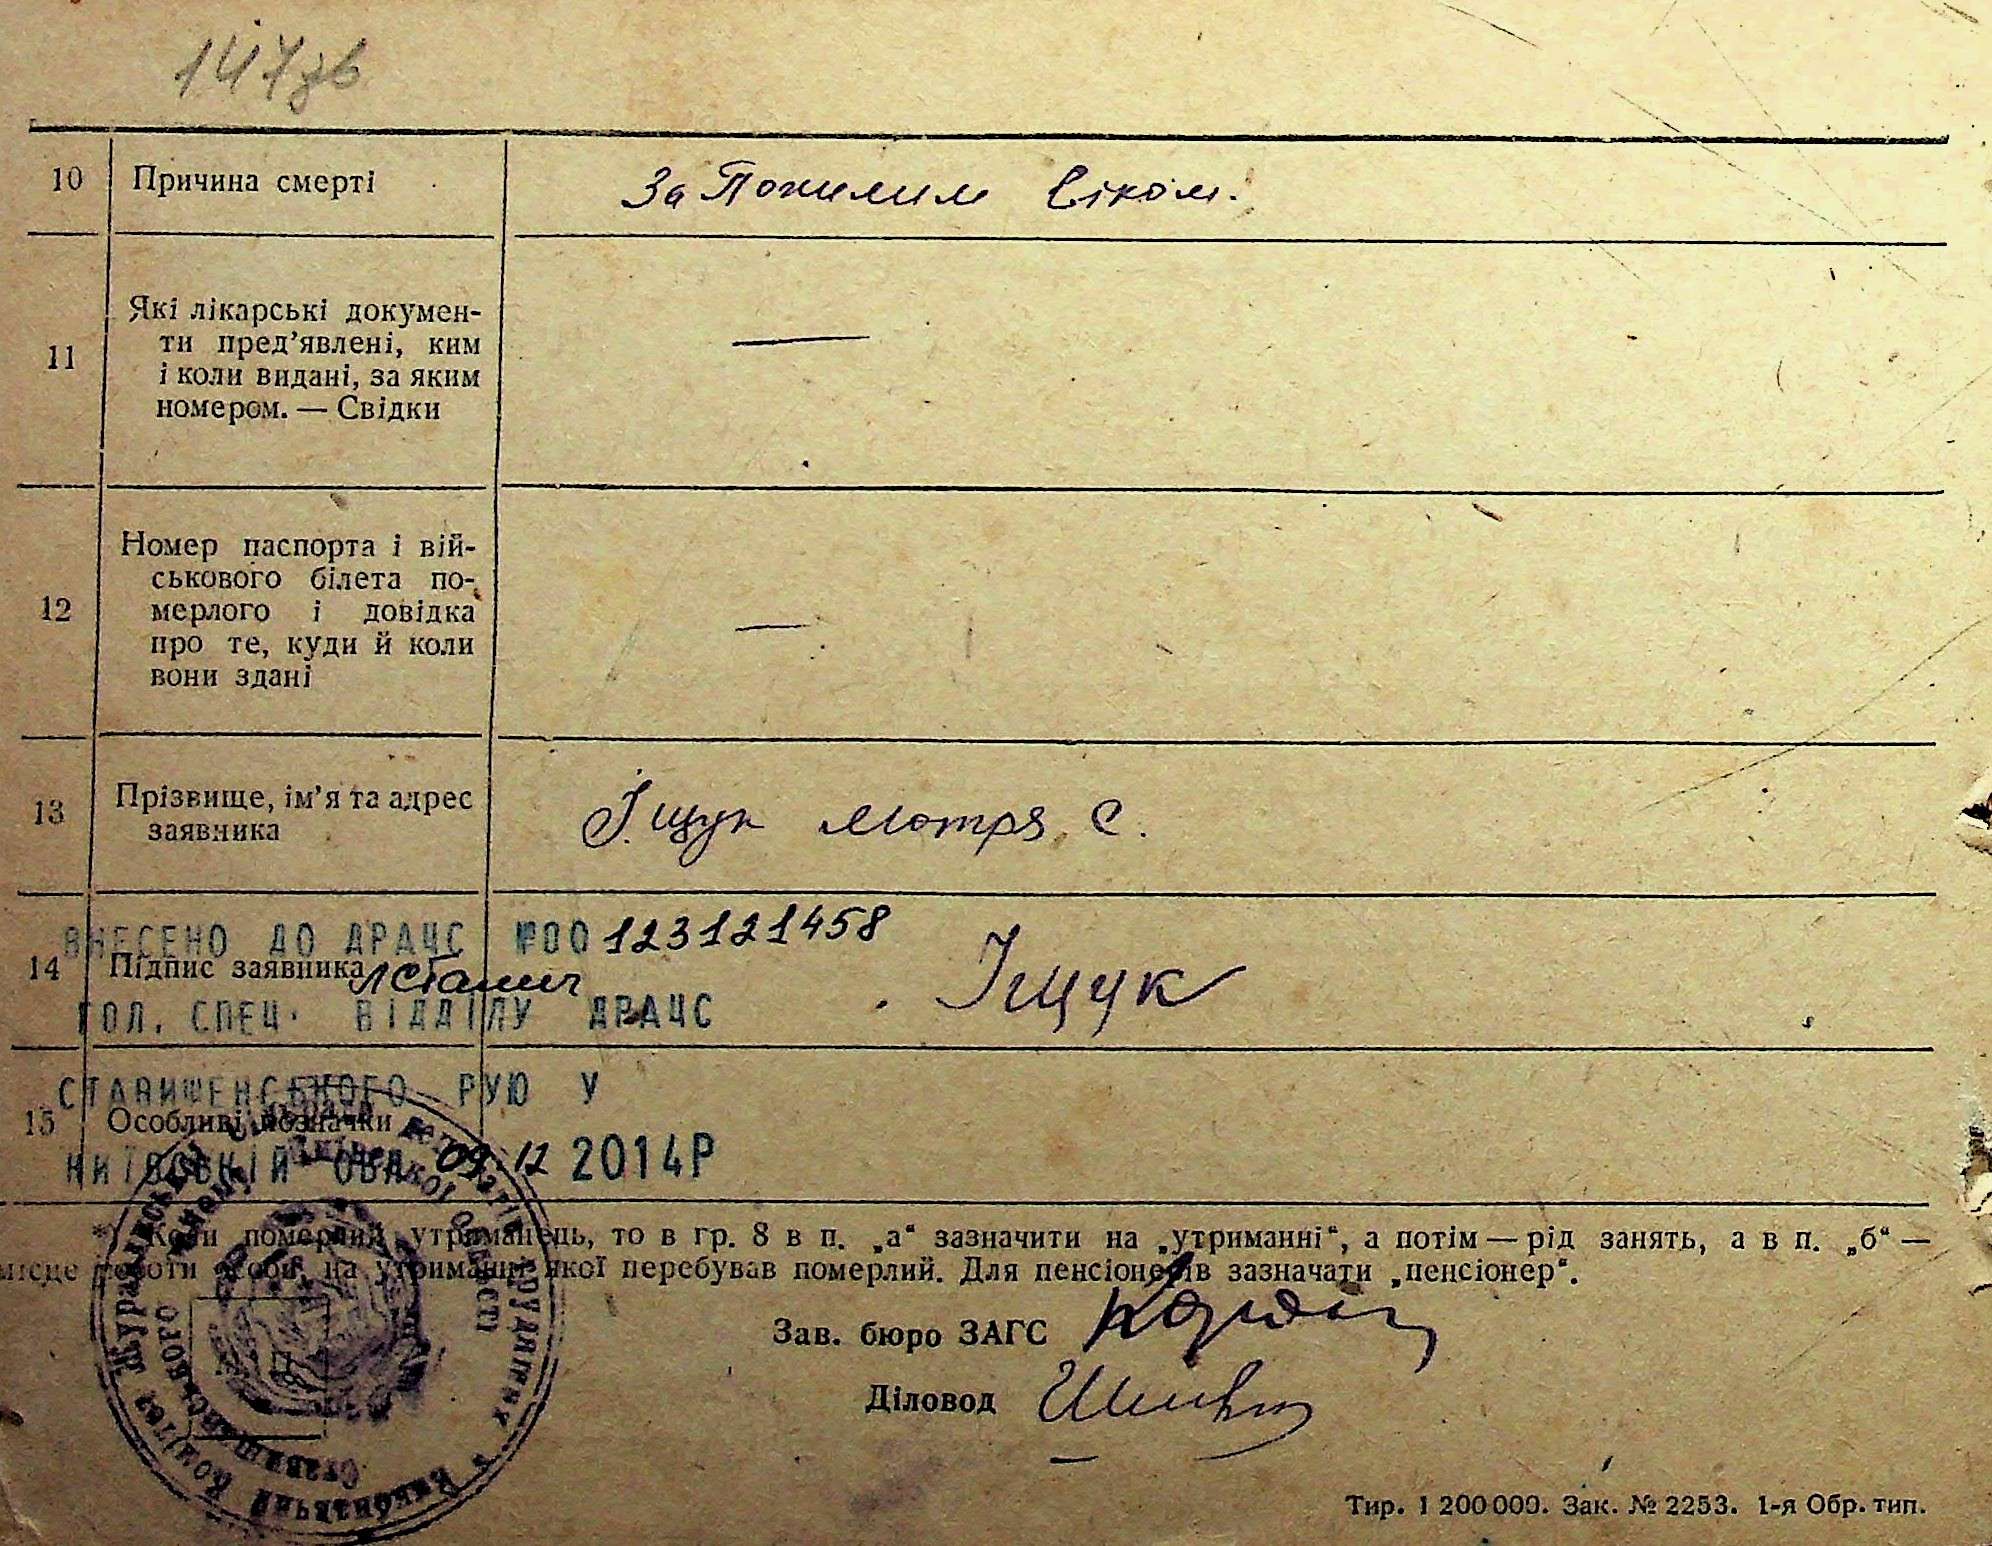 147зв
10 Причина смерті За Похилим Віком.
11 Які лікарські докумен-
ти пред’явлені, ким
і коли видані, за яким
номером. — Свідки —
12 Номер паспорта і вій-
ськового білета по-
мерлого і довідка
про те, куди й коли
вони здані —
13 Прізвище, ім’я та адрес
заявника Іщук Мотря С.
ВНЕСЕНО ДО ДРАЦС №00123121458
14 Підпис заявника Іщук
ГОЛ. СПЕЦ. ВІДДІЛУ ДРАЦС
СТАВИЩЕНСЬКОГО РУЮ У
15 Особливі позначки
КИЇВСЬКІЙ ОБЛ 09.12 2014Р
*) Коли померлий утриманець, то в гр. 8 в п. „а“ зазначити на „утриманні“, а потім — рід занять, а в п. „б“ —
місце роботи особи, на утриманні якої перебував померлий. Для пенсіонерів зазначати „пенсіонер“.
Зав. бюро ЗАГС
Діловод
Виконавчий Комітет Ставищанського
Тир. 1 200 000. Зак. № 2253. 1-я Обр. тип.